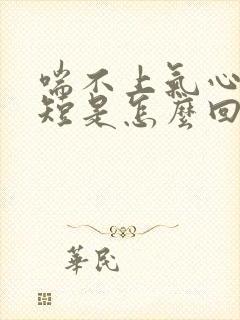 喘不上氣心
短是怎麼回
華民